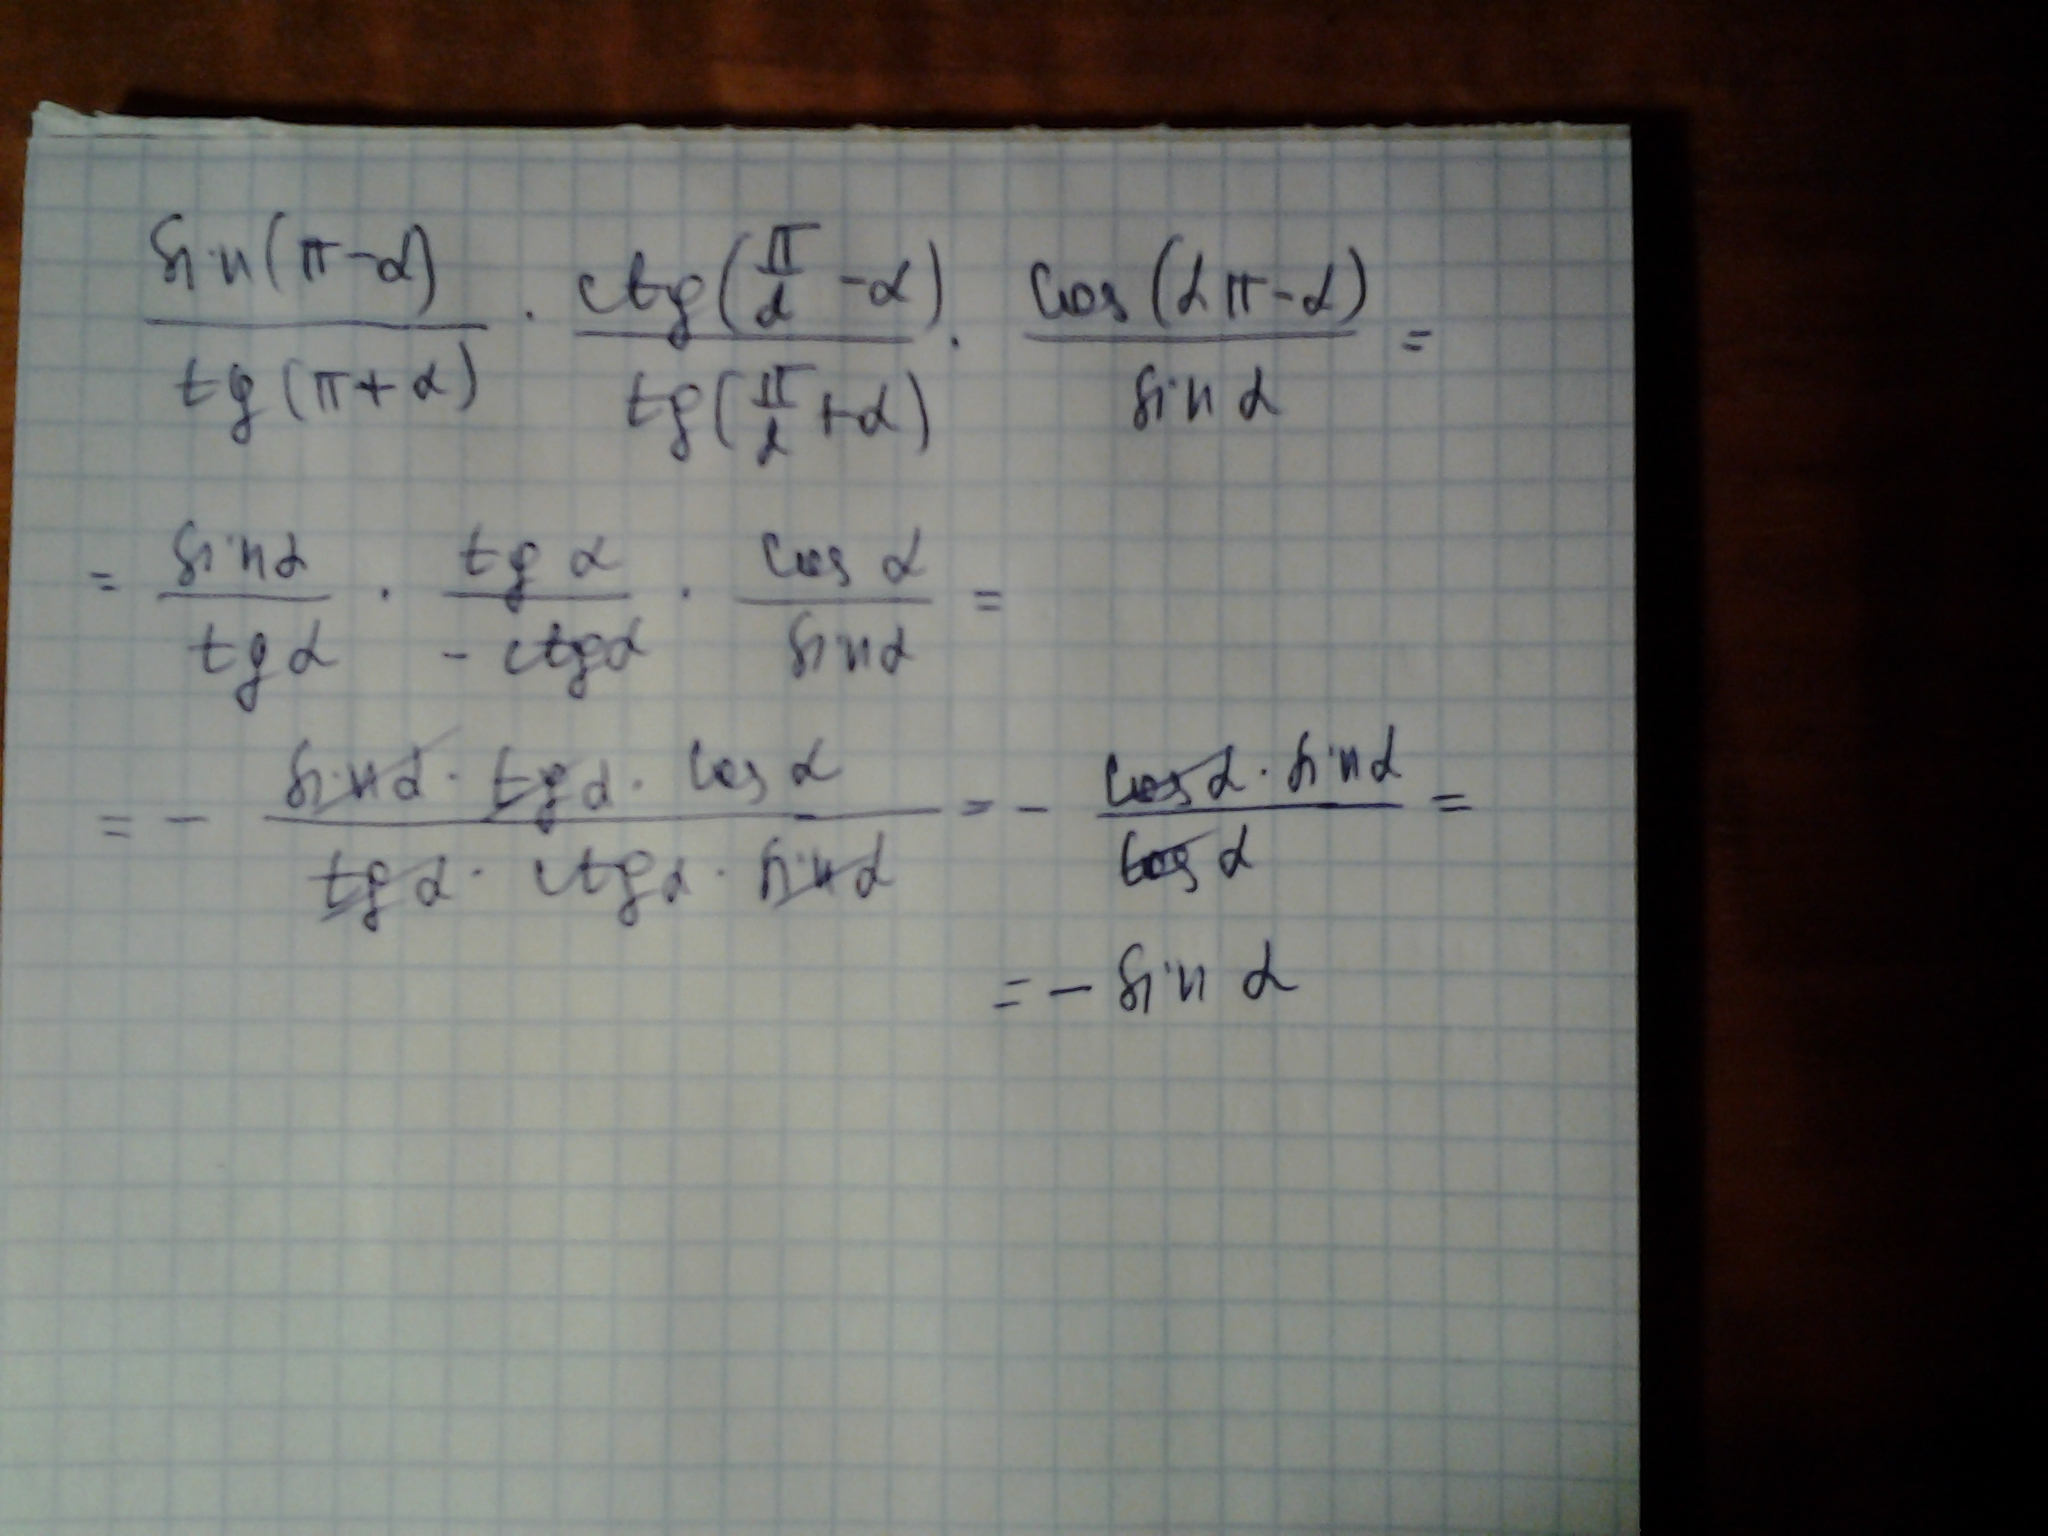 sin(π-α)/tg(π+α) · ctg(π/2 -α)/tg(π/2 +α) · cos(2π-α)/sin α =
= sinα/tgα · tg α/-ctgα · cos α/sinα =
= - sinα · tgα · cos α/tgα · ctgα · sinα = - cosα · sinα/cos α =
= - sin α